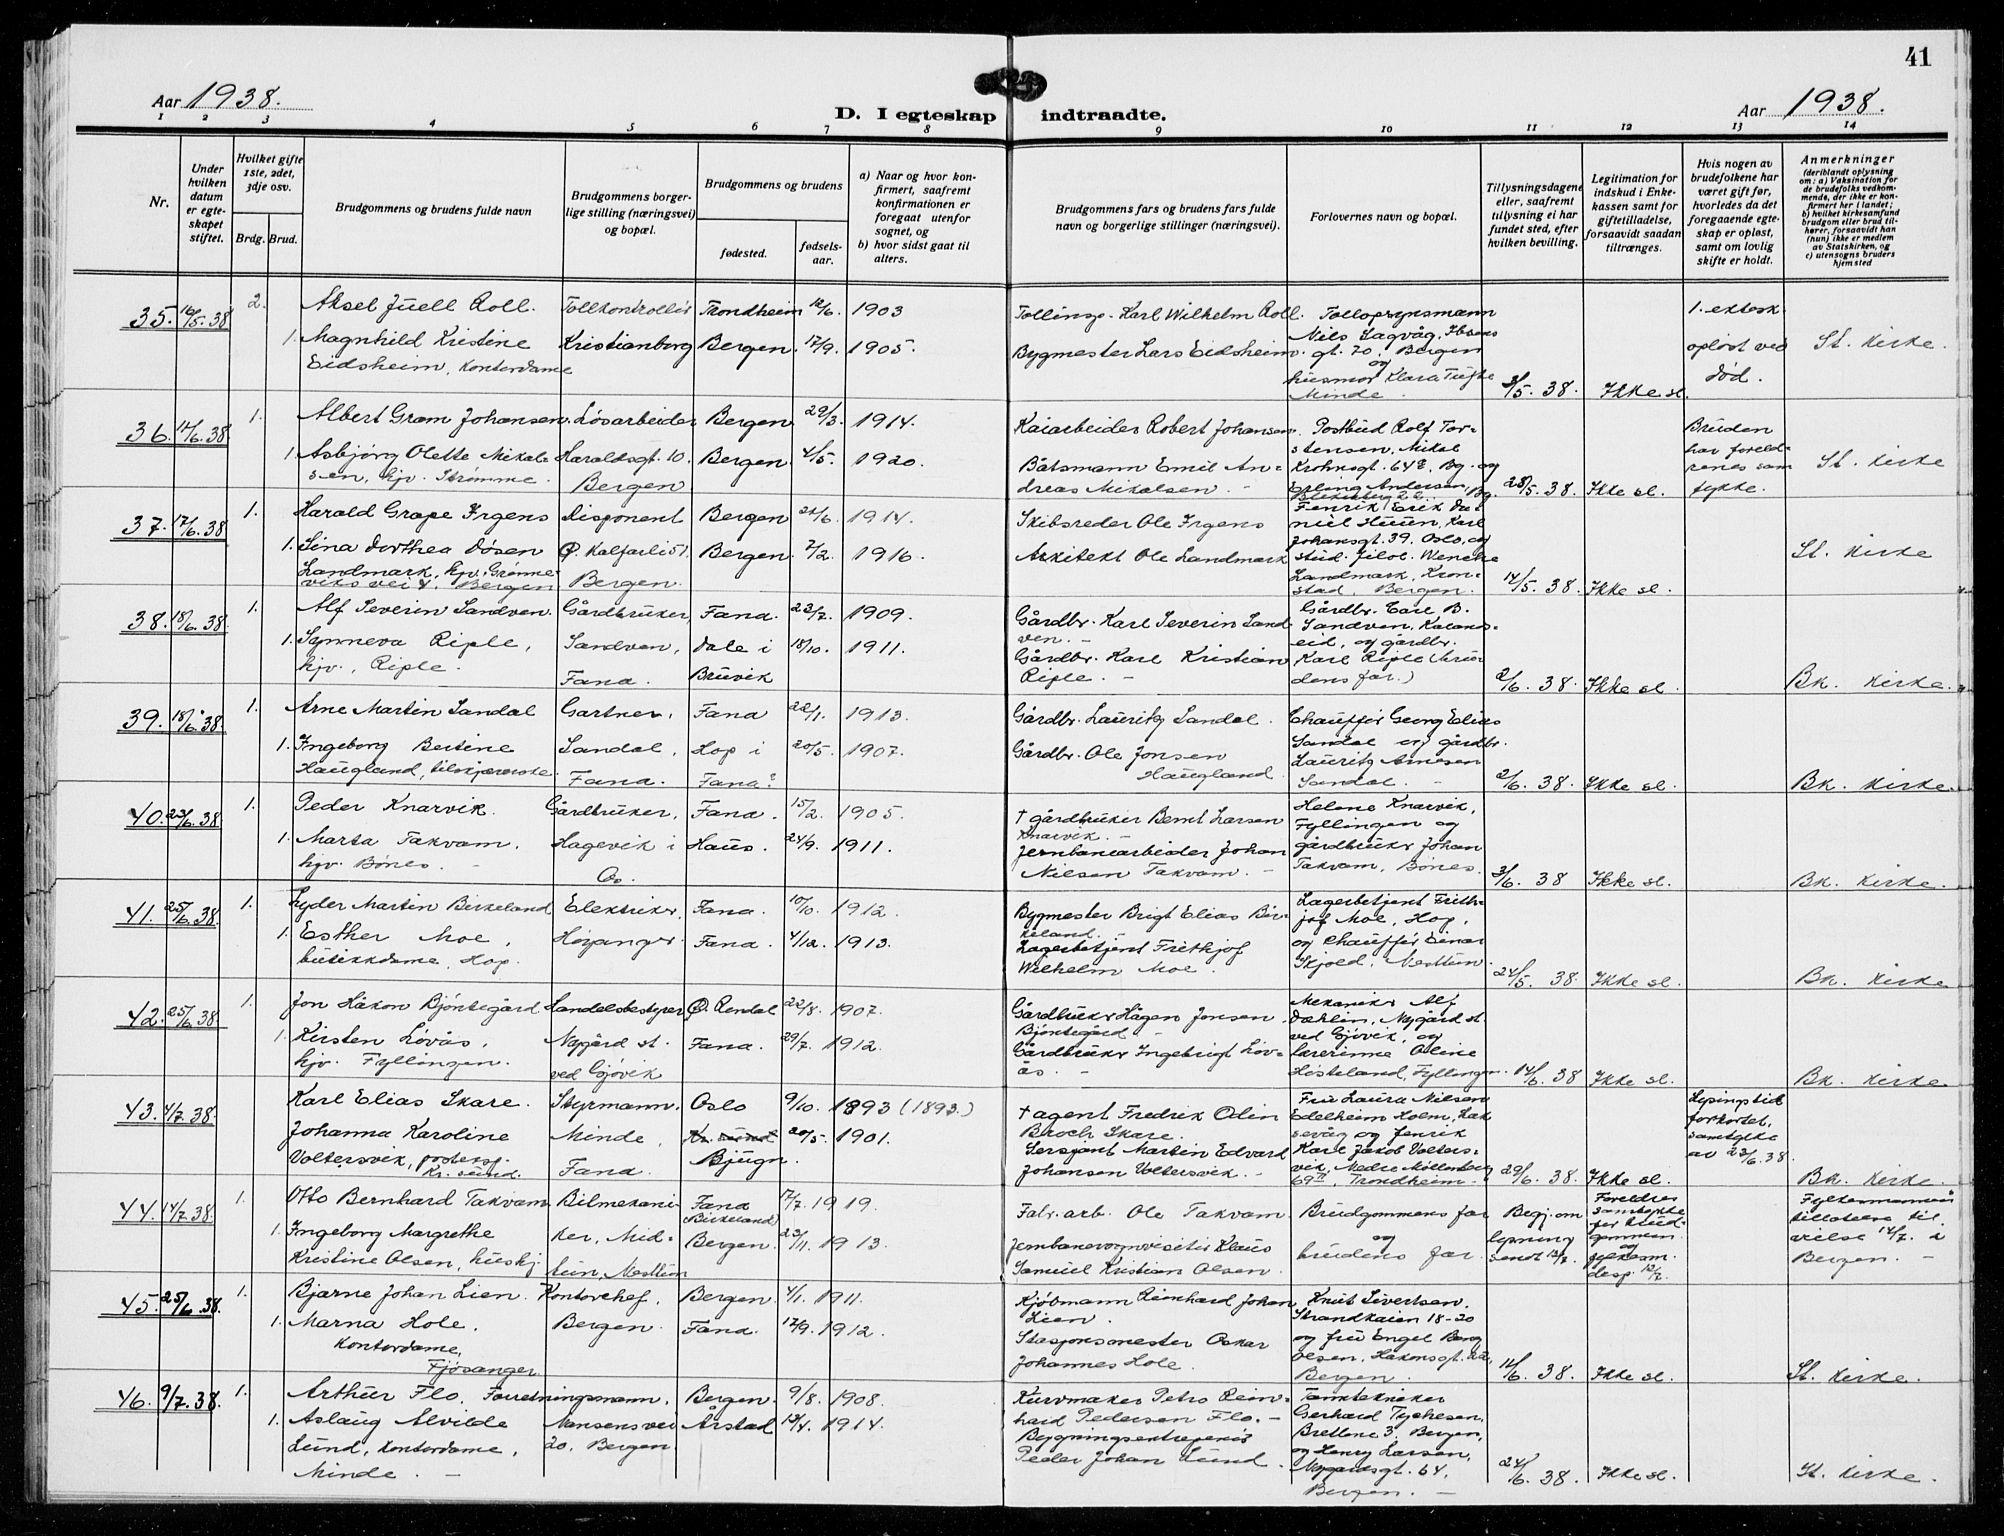 41
Aar 1938.
D. I egteskap indtraadte.
Aar 1938.
1 2 3 4 5 6 7 8 9 10 11 12 13 14
Nr.
Under hvilken datum er egteskapet stiftet.
Hvilket gifte 1ste, 2det, 3dje osv.
Brdg. Brud.
Brudgommens og brudens fulde navn
Brudgommens borgerlige stilling (næringsvei) og bopæl.
Brudgommens og brudens
fødested.
fødselsaar.
a) Naar og hvor konfirmert, saafremt konfirmationen er foregaat utenfor sognet, og
b) hvor sidst gaat til alters.
Brudgommens fars og brudens fars fulde navn og borgerlige stillinger (næringsvei).
Forlovernes navn og bopæl.
Tillysningsdagene eller, saafremt tillysning ei har fundet sted, efter hvilken bevilling.
Legitimation for indskud i Enkekassen samt for giftetilladelse, forsaavidt saadan tiltrænges.
Hvis nogen av brudefolkene har været gift før, hvorledes da det foregaaende egteskap er opløst, samt om lovlig skifte er holdt.
Anmerkninger (deriblandt oplysning om: a) Vaksination for de brudefolks vedkommende, der ikke er konfirmert her i landet; b) hvilket kirkesamfund brudgom eller brud tilhører, forsaavidt han (hun) ikke er medlem av Statskirken, og c) utensogns bruders hjemsted
35. 16/5.38 2. Aksel Juell Roll. Tollkontrollør Trondheim 12/6. 1903
1. Magnhild Kristine Kristianborg Bergen. 17/9. 1905.
Eidsheim, Kontordame
Tollinsp. Karl Wilhelm Roll.
Bygmester Lars Eidsheim.
Tollopsynsmann
Nils Sagvåg, Ibsens
gt. 70. Bergen
og
husmor Klara Tufte
Minde.
3/5. 38. Ikke sl.
1. ektesk.
opløst ved
død.
St. Kirke.
36. 17/6.38 1. Albert Gram Johansen. Løsarbeider Bergen. 29/3. 1914.
1. Asbjørg Olette Mikal- Haraldsgt. 10. Bergen. 4/5. 1920.
sen, hjv. Strømme. Bergen
Kaiarbeider Robert Johansen.
Båtsmann Emil An-
dreas Mikalsen.
Postbud Rolf Tor-
stensen, Mikal
Krohnsgt. 64, Bg. og
Erling Andersen,
Blekenberg 22. Bg.
28/5.38. Ikke sl.
Bruden
har foreld-
renes sam
tykke.
St. Kirke
37. 17/6.38 1. Harald Grape Irgens Disponent Bergen 21/6. 1914.
1. Lina Dorthea Døsen Ø. Kalfarli 51. Bergen. 7/2. 1916.
Landmark, hjv. Grønne-
viks vei 4. Bergen Bergen.
Skibsreder Ole Irgens
Arkitekt Ole Landmark
Fenrik Erik Da-
niel Huun, Karl
Johansgt. 39. Oslo, og
stud. filol. Wenche
Landmark, Kron-
stad, Bergen.
14/5. 38. Ikke sl.
St. Kirke
38. 18/6.38 1. Alf Severin Sandven. Gårdbruker, Fana. 23/7. 1909.
1. Synneva Riple, Sandven, Dale i 18/10. 1911.
hjv., Riple. Fana. Bruvik
Gårdbr. Karl Severin Sand
ven.
Gårdbr. Karl Kristian
Riple.
Gårdbr. Carl B.
Sandven, Kaland-
eid, og gårdbr.
Karl Riple (bru-
dens far.)
2/6. 38. Ikke sl.
Bk. Kirke.
39. 18/6.38. 1. Arne Martin Sandal Gartner, Fana 22/1. 1913.
1. Ingeborg Bertine Sandal, Hop i 20/5. 1907.
Haugland, tilskjærerske Fana. Fana.
Gårdbr. Lauritz Sandal.
Gårdbr. Ole Jonsen
Haugland
Chauffør Georg Elias
Sandal og gårdbr.
Lauritz Arnesen
Sandal.
2/6. 38. Ikke sl.
Bk. Kirke.
40. 23/6.38. 1. Peder Knarvik. Gårdbruker, Fana. 15/2. 1905.
1. Marta Takvam, Hagevik i Haus. 24/9. 1911.
hjv. Bønes. Os.
† gårdbruker Bernt Larsen
Knarvik.
Jernbanearbeider Johan
Nielsen Takvam.
Helene Knarvik,
Fyllingen og
gårdbruker Johan
Takvam, Bønes.
3/6. 38 Ikke sl.
Bk. Kirke.
41. 25/6.38 1. Lyder Martin Birkeland Elektriker, Fana. 10/10. 1912.
1. Esther Moe, Høyanger. Fana. 4/12. 1913.
butikkdame, Hop.
Bygmester Brigt Elias Bir-
keland.
Lagerbetjent Frithjof
Wilhelm Moe.
Lagerbetjent Frith-
jof Moe, Hop,
og Chauffør Einar
Skjold, Nesttun.
24/5. 38. Ikke sl.
Bk. Kirke
42. 25/6.38 1. Jon Håkon Bjøntegård Handelsbestyrer Ø. Rendal 22/8. 1907.
1. Kirsten Løvås, Nygård st. Fana. 29/7. 1912.
hjv. Fyllingen. ved Gjøvik
Gårdbruker Hågen Jonsen
Bjøntegård
Gårdbruker Ingebrigt Løv-
ås.
Mekaniker Alf
Dæhlin, Nygård st.
ved Gjøvik, og
lærerinne Oline
Hesteland, Fyllingen.
14/6. 38 Ikke sl.
Bk. Kirke.
43. 4/7.38 Karl Elias Skare. Styrmann, Oslo 9/10. 1893 (1893.)
Johanna Karoline Minde, Kr. sund 20/5. 1901.
Voltersvik, postexp.
Kr. sund. Fana. Bjugn.
† agent Fredrik Olin
Broch Skare.
Sersjant Martin Edvard
Johansen Voltersvik.
Fru Laura Nielsen
Edelheim Holm, Lak-
sevåg og fenrik
Karl Jakob Volters-
vik, Nedre Møllenberg
69, Trondheim.
29/6. 38. Ikke sl.
Lysingstid
forkortet,
samtykke
av 23/6.38.
Bk. Kirke.
44. 14/7.38. 1. Otto Bernhard Takvam Bilmekani- Fana (Birkeland) 17/7. 1919.
1. Ingeborg Margrethe ker, Mid- Bergen. 23/11. 1913.
Kristine Olsen, hushj. tun, Nesttun
Fabr. arb. Ole Takvam.
Jernbanevognvisitør Klaus
Samuel Kristian Olsen.
Brudgommens far
og
brudens far.
Begj. om
lysning
sendt 13/7.
Foreldres
samtykke
for brud-
gommen
og
fylkesm.
desp. 12/7.
Fylkesmannens
tillatelse til
vielse 14/7. i
Bergen.
45. 25/6.38. 1. Bjarne Johan Lien. Kontorchef, Bergen. 4/1. 1911.
1. Marna Hole. Bergen. Fana. 17/9. 1912.
Kontordame,
Fjøsanger
Kjøbmann Reinhard Johan
Lien.
Stasjonsmester Oskar
Johannes Hole.
Knut Sivertsen,
Strandkaien 18-20
og fru Engel Berg
Olsen, Håkonsgt. 22,
Bergen.
11/6. 38. Ikke sl.
St. Kirke.
46. 9/7.38. 1. Arthur Flo. Forretningsmann. Bergen. 9/8. 1908.
1. Aslaug Alvilde Nansens vei Årstad 13/4. 1914.
Lund, Kontordame, 20. Bergen.
Minde.
Kurvmaker Petro Rein-
hard Pedersen Flo.
Bygningsentreprenør
Peder Johan Lund.
Tanntekniker
Gerhard Tychesen,
Brettene 3, Bergen,
og Henry Larsen,
Nygårdsgt. 64,
Bergen.
24/6. 38. Ikke sl.
St. Kirke.